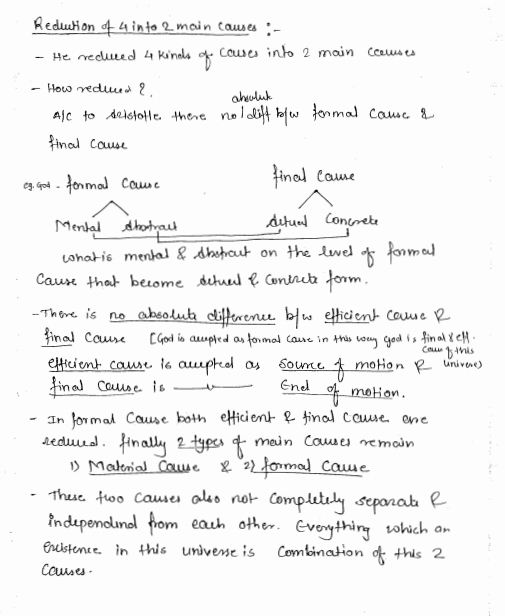 Reduction of 4 into 2 main causes :-
- He reduced 4 kinds of causes into 2 main causes
- How reduced ?
A/C to Aristotle there no absolute diff b/w formal cause &
final cause
eg. God - formal cause
final cause
Mental Abstract Actual Concrete
what is mental & Abstract on the level of formal
Cause that become Actual & Concrete form.
- There is no absolute difference b/w efficient cause &
final cause [God is accepted as formal cause in this way God is final & eff. cause of this universe]
efficient cause is accepted as source of motion &
final cause is —"— End of motion.
- In formal cause both efficient & final cause are
reduced. finally 2 types of main causes remain
1) Material Cause & 2) formal cause
- These two causes also not completely separate &
independind from each other. Everything which an
existence in this universe is combination of this 2
causes.